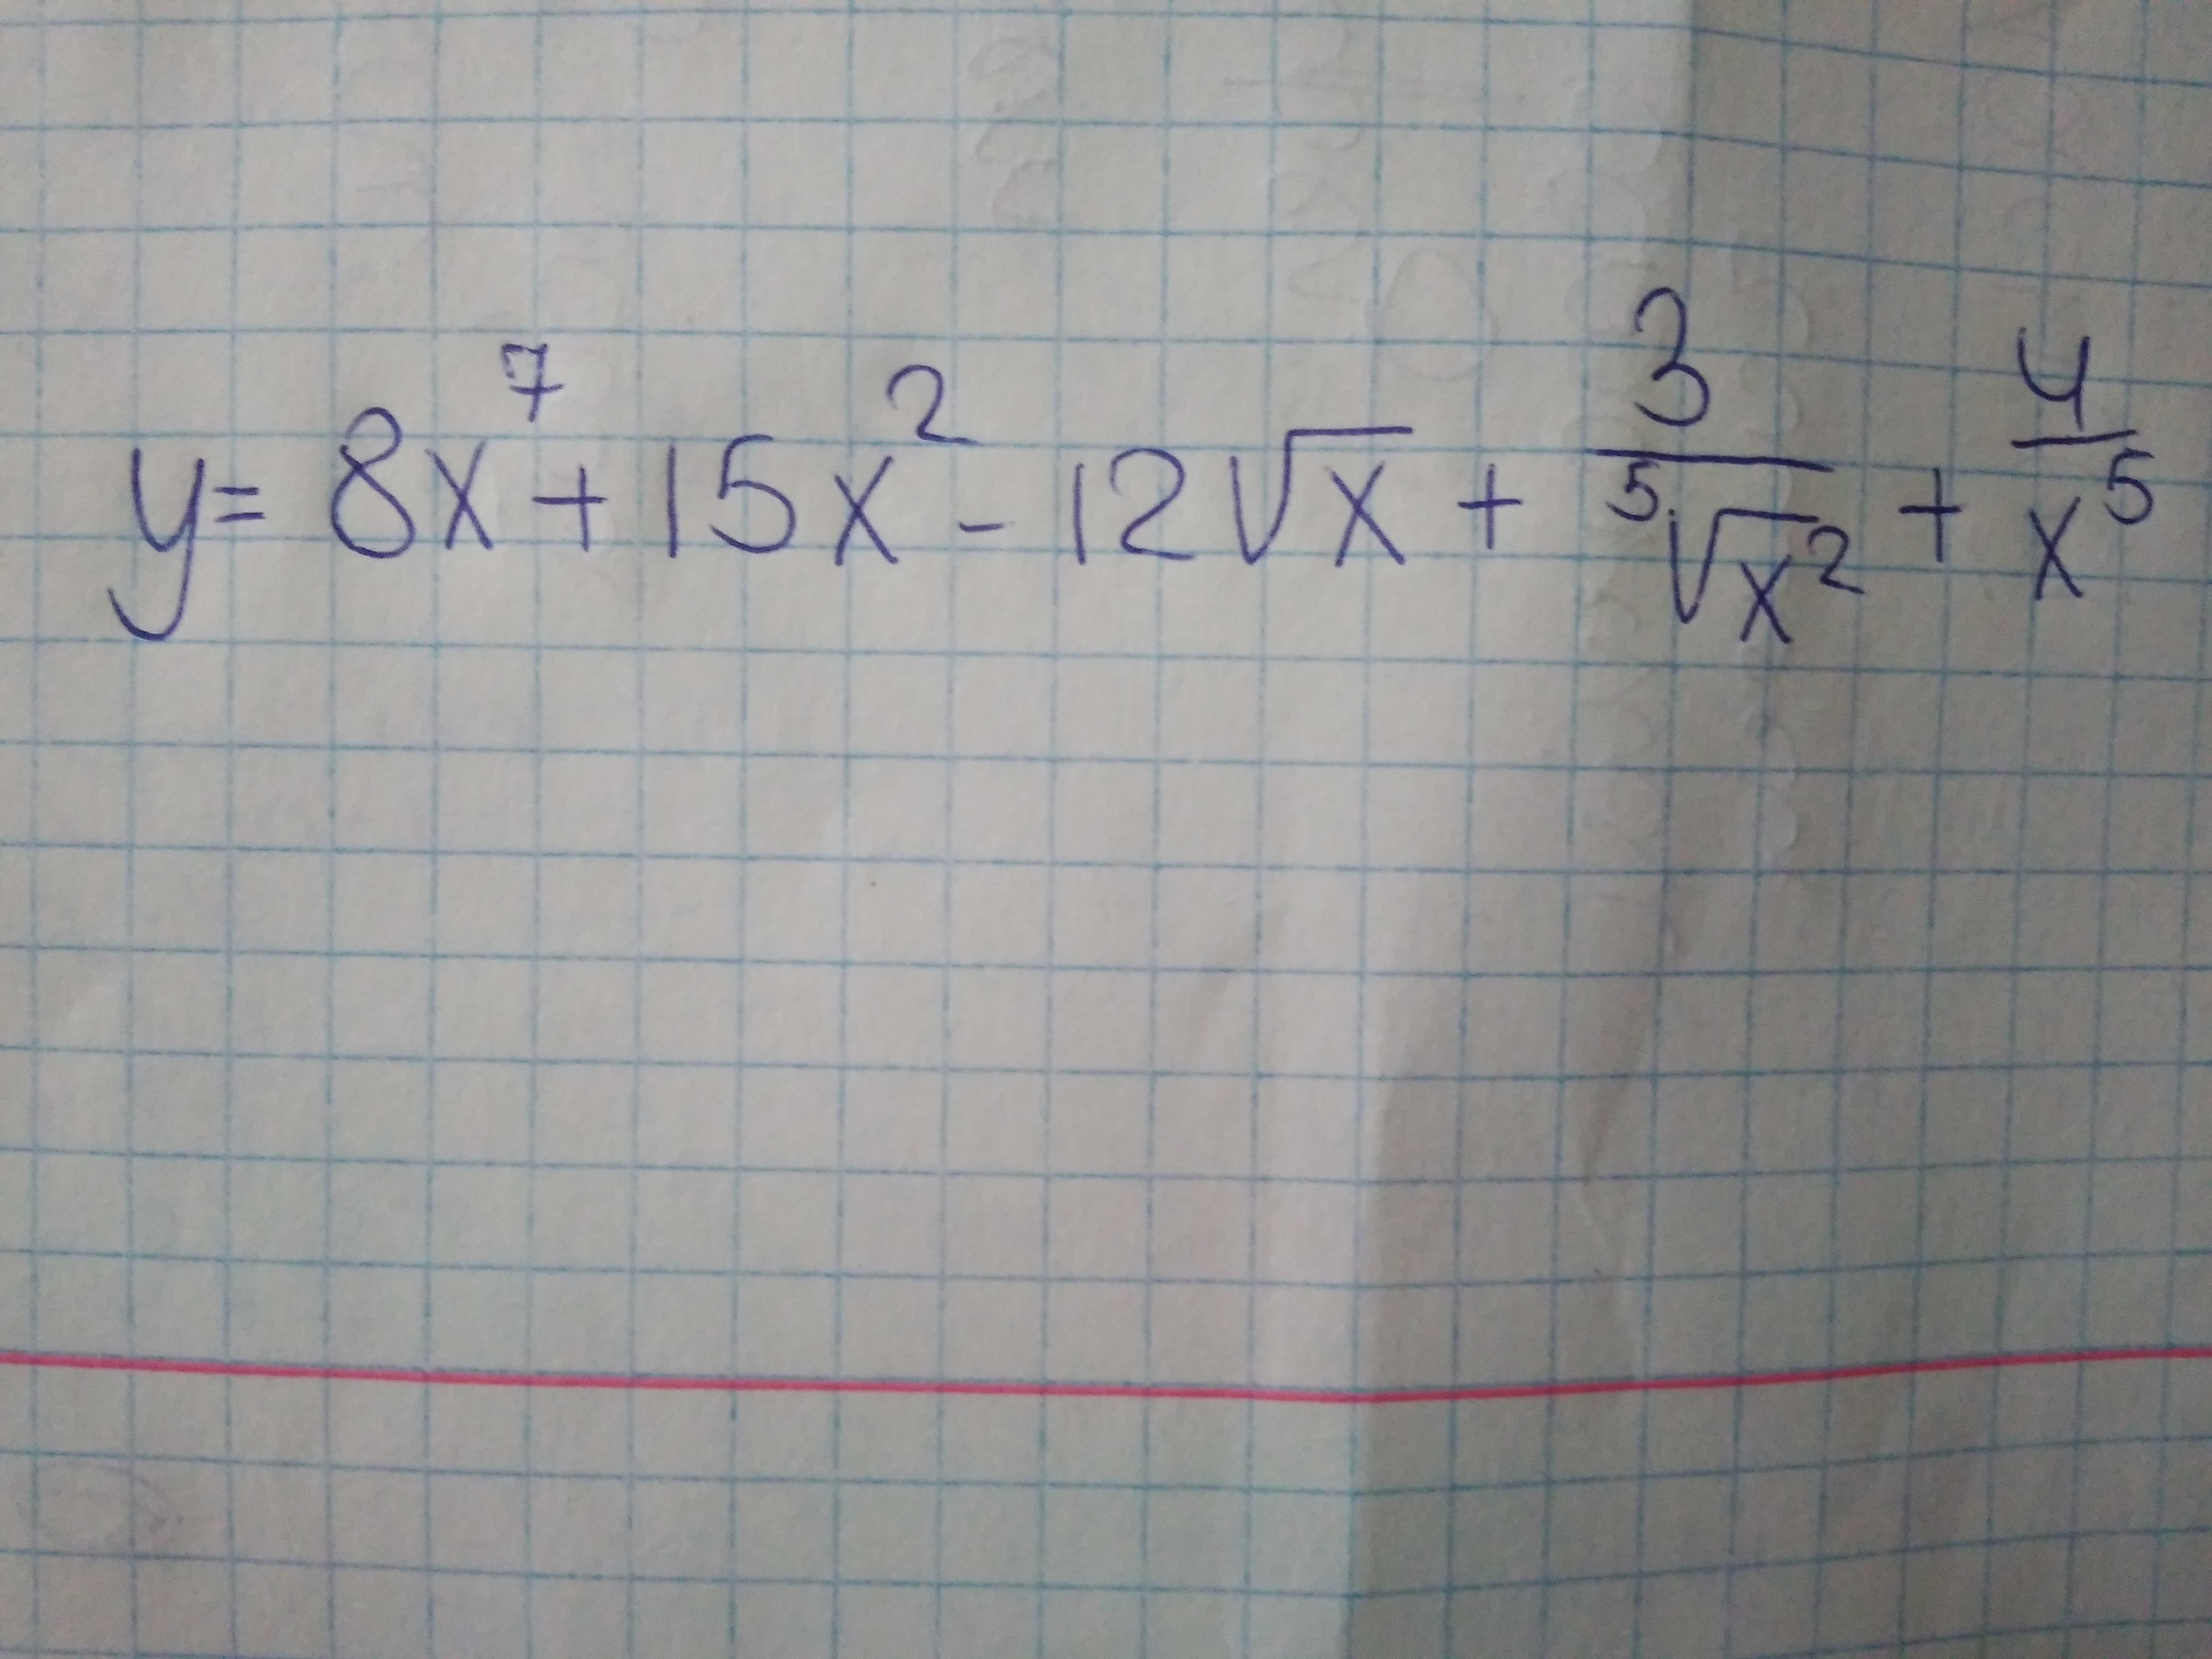 y = 8x⁷ + 15x² - 12√x + 3/⁵√x² + 4/x⁵